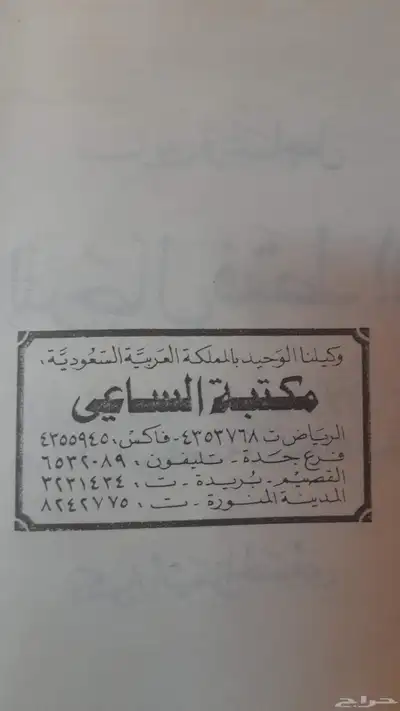 وكيلنا الوحيد بالمملكة العربية السعودية،
مكتبة الساعي
الرياض ت ٤٣٥٣٧٦٨ - فاكس: ٤٣٥٥٩٤٥
فرع جدة - تليفون: ٦٥٣٢٠٨٩
القصيم - بريدة - ت: ٣٢٣١٤٣٤
المدينة المنورة - ت: ٨٢٤٢٧٧٥
حراج